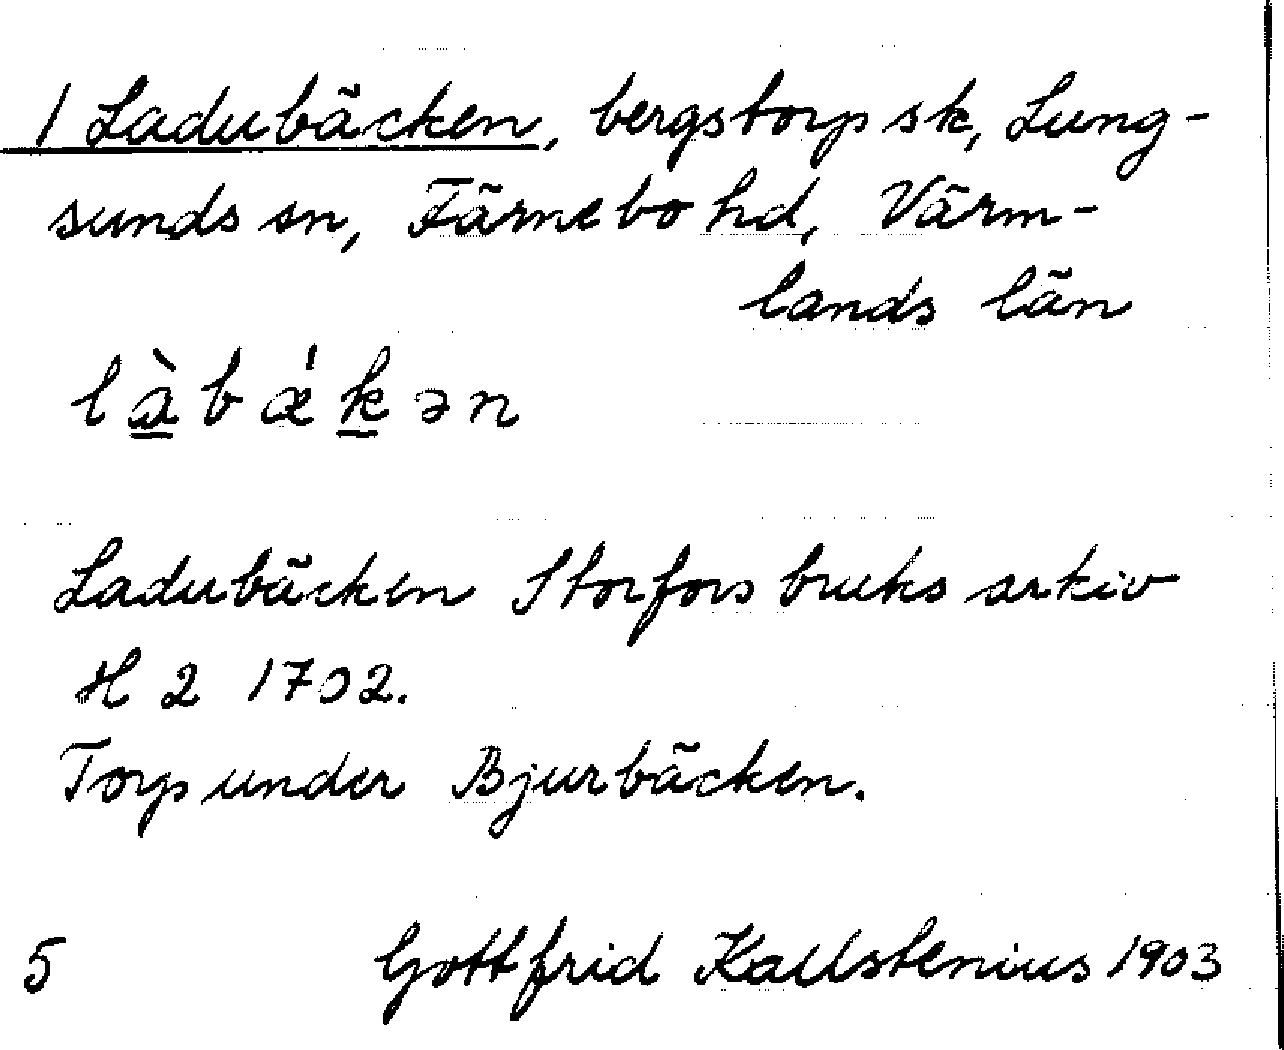 1 Ladubäcken, bergstorp sk, Lung-
sunds sn, Färnebo hd, Värm-
lands län
là̳bǽk̳ən
Ladubäcken Storfors bruks arkiv
H 2 1702.
Torp under Bjurbäcken.
5 Gottfrid Kallstenius 1903